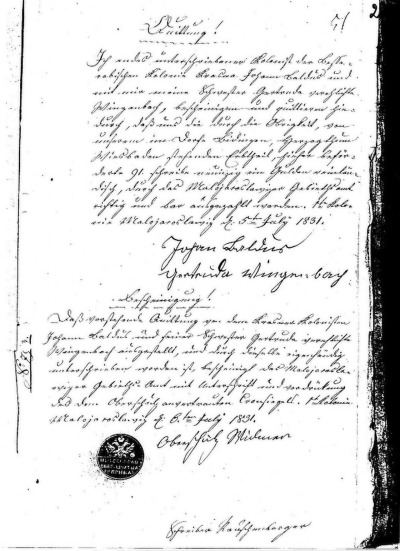 51
2
Quittung!
Ich endes unterschriebener Kolonist der Bessa-
rabischen Kolonie Krasna Johann Baldus und
mit mir meine Schwester Gertruda verehlichte
Wingenbach, bescheinigen und quittiren hie-
durch, daß uns die durch die Obrigkeit, von
unserem im Dorfe Büdingen, Herzogthum
Wiesbaden stehenden Erbtheil, hieher beför-
derte 91 schreibe neunzig ein Gulden reinlän-
disch, durch das Malojaroslawizer Gebiethsamt
richtig und bar ausgezahlt worden. Kolo-
nie Malojaroslawiz d. 5ten July 1831.
Johan Baldus
Gertruda Wingenbach
Bescheinigung!
Daß vorstehende Quittung von dem Krasner Kolonisten
Johann Baldus und seiner Schwester Gertruda verehlichte
Wingenbach ausgestellt, und durch dieselbe eigenhändig
unterschrieben worden ist, bescheinigt das Malojarosla-
wizer Gebieths Amt mit Unterschrift und
des dem Oberschulz anvertrauten Kronsiegels. Kolonie
Malojaroslawiz d. 6ten July 1831.
Oberschulz Widmer
Schreiber Rauschenberger